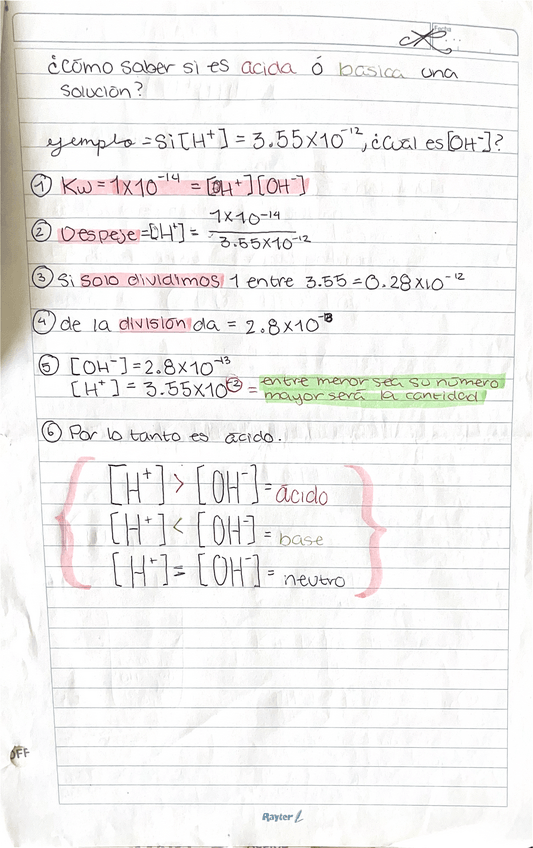 Fecha
¿Cómo saber si es acida ó basica una
solución?
ejemplo = Si [H⁺] = 3.55x10⁻¹², ¿Cual es [OH⁻]?
① Kw = 1x10⁻¹⁴ = [H⁺] [OH⁻]
② Despeje = [H⁺] = 1x10⁻¹⁴
3.55x10⁻¹²
③ Si solo dividimos 1 entre 3.55 = 0.28x10⁻¹²
④ de la división da = 2.8x10⁻¹³
⑤ [OH⁻] = 2.8x10⁻¹³
[H⁺] = 3.55x10⁻¹² = entre menor sea su número
mayor será la cantidad
⑥ Por lo tanto es ácido.
[H⁺] > [OH⁻] = ácido
[H⁺] < [OH⁻] = base
[H⁺] = [OH⁻] = neutro
OFF
Rayter